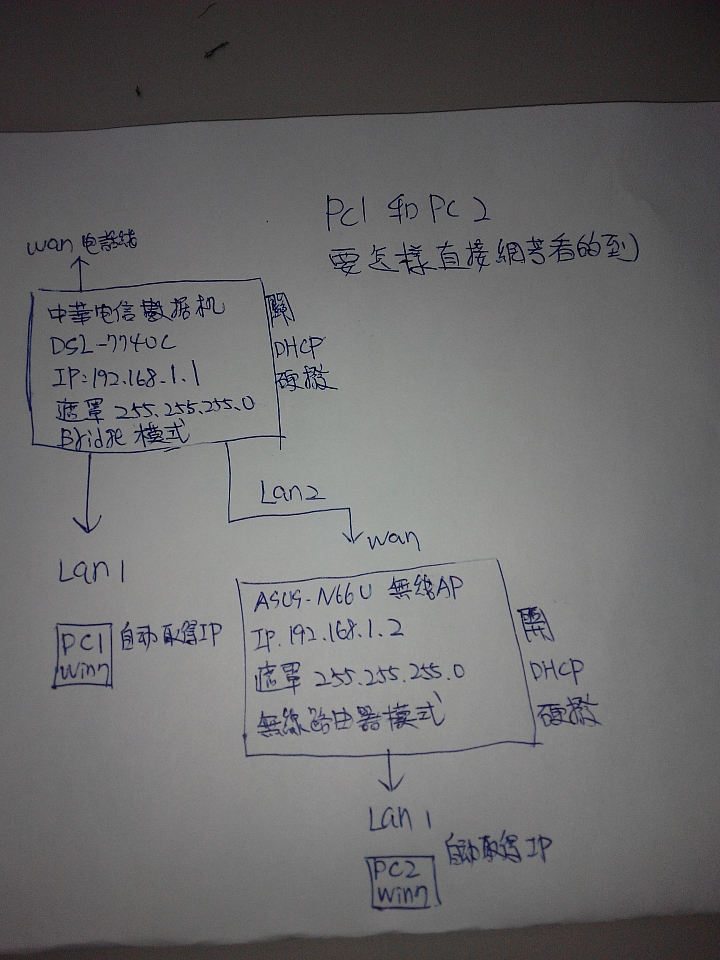 PC1 和 PC2
要怎樣直接網芳看的到
wan 电話線
中華电信數据机
DSL-7740C
IP:192.168.1.1
遮罩 255.255.255.0
Bridge 模式
關
DHCP
硬撥
Lan2
wan
Lan 1
PC1
Win7
自动取得IP
ASUS-N66U 無線AP
IP.192.168.1.2
遮罩 255.255.255.0
無線路由器模式
開
DHCP
硬撥
Lan 1
PC2
Win7
自动取得IP